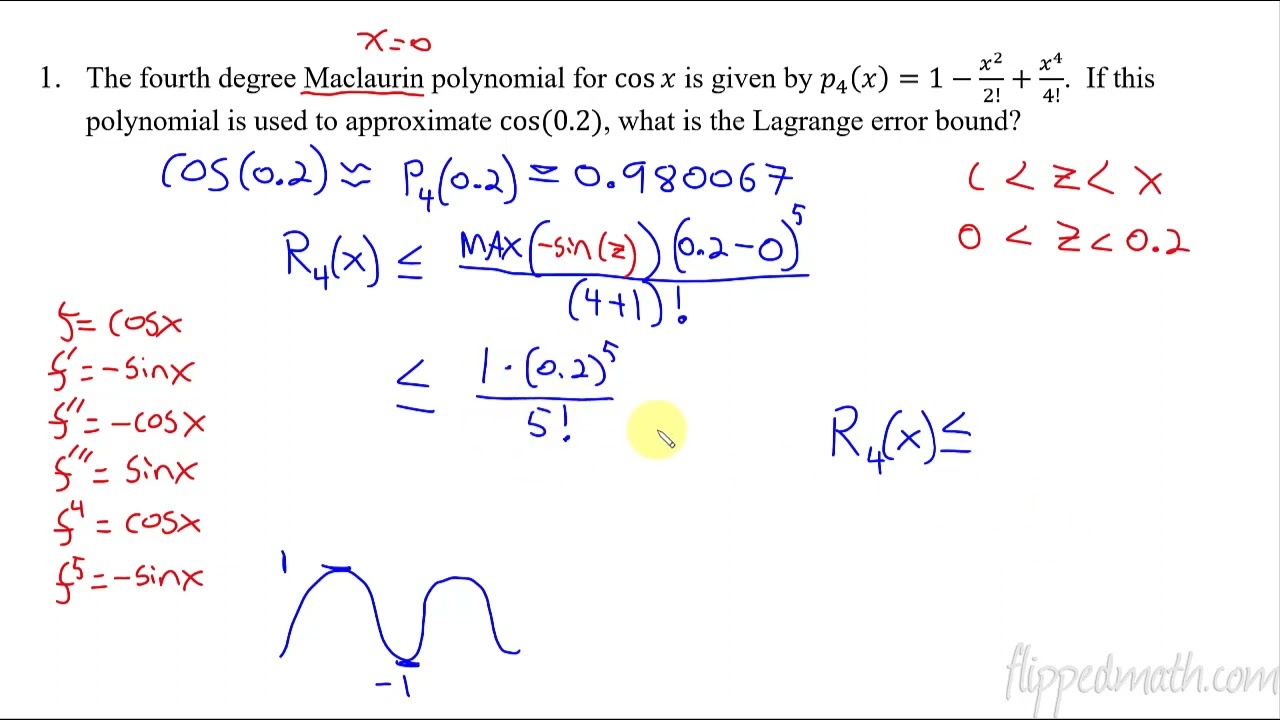 x=0
1. The fourth degree Maclaurin polynomial for cos x is given by p₄(x) = 1 − x²/2! + x⁴/4!. If this
polynomial is used to approximate cos(0.2), what is the Lagrange error bound?
cos(0.2) ≈ P₄(0.2) = 0.980067
c < z < x
0 < z < 0.2
R₄(x) ≤ MAX(-sin(z))(0.2-0)⁵/(4+1)!
≤ 1·(0.2)⁵/5!
R₄(x) ≤
f = cosx
f' = -sinx
f'' = -cosx
f''' = sinx
f⁴ = cosx
f⁵ = -sinx
1
-1
flippedmath.com